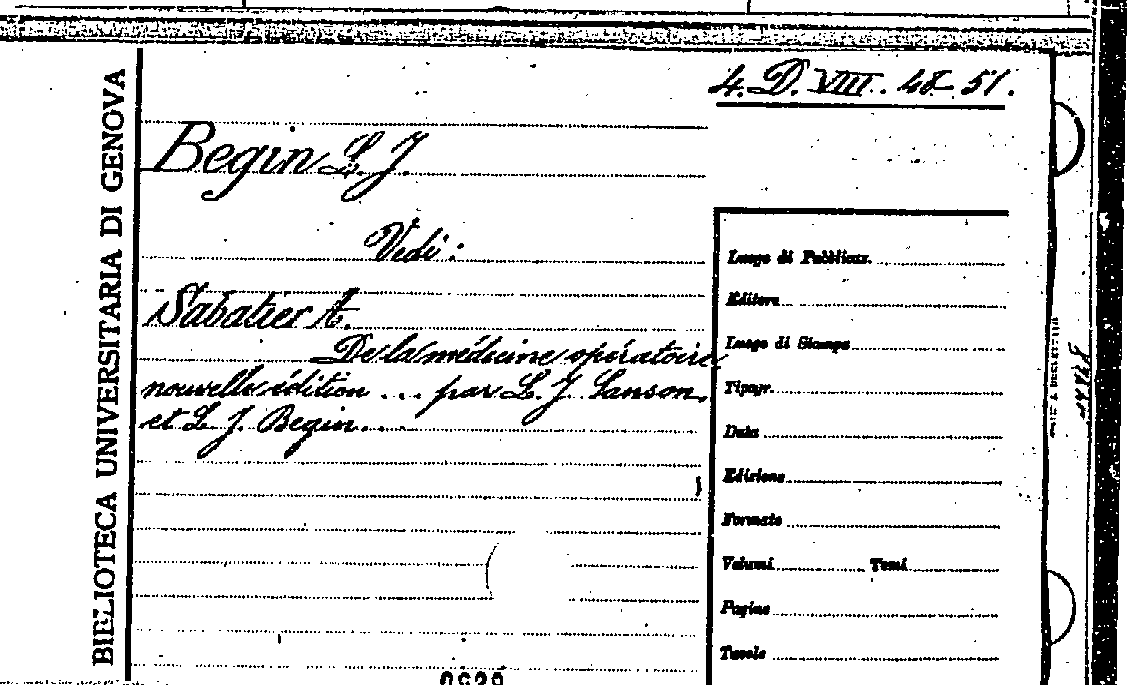 4. D. VIII. 48-51.
BIBLIOTECA UNIVERSITARIA DI GENOVA
Begin L. J.
Vedi:
Sabatier A.
De la médecine opératoire
nouvelle édition ... par L. J. Sanson,
et L. J. Begin...
Luogo di Pubblicaz.
Editore
Luogo di Stampa
Tipogr.
Data
Edizione
Formato
Volumi Tomi
Pagine
Tavole